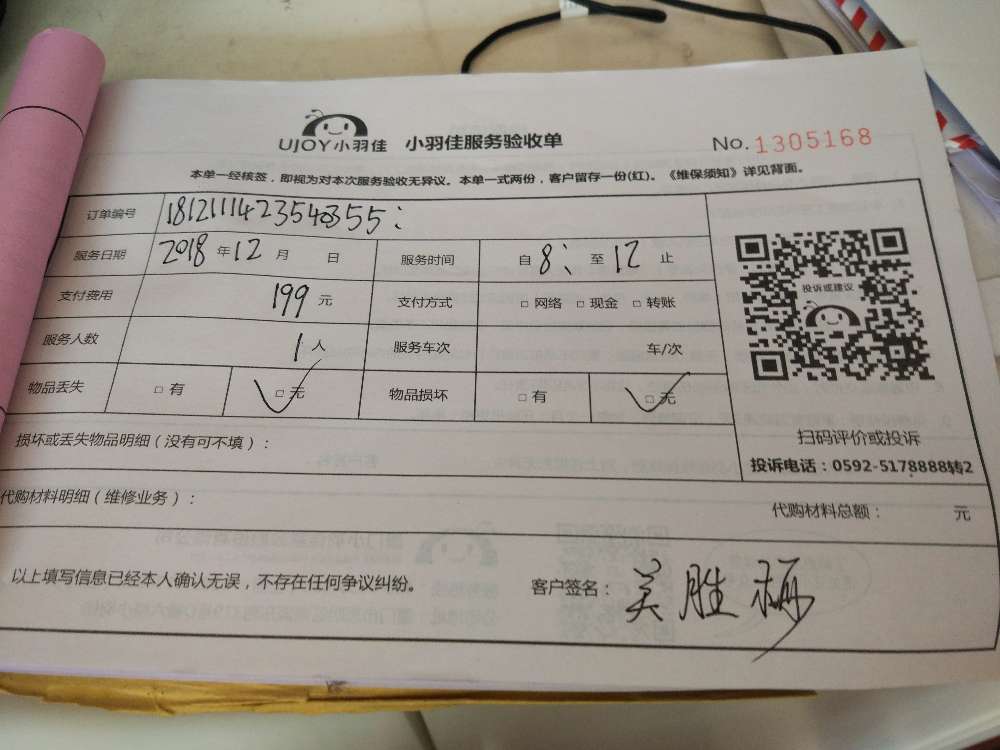 UJOY小羽佳 小羽佳服务验收单 No.1305168
本单一经核签，即视为对本次服务验收无异议。本单一式两份，客户留存一份(红)。《维保须知》详见背面。
订单编号
服务日期 2018年12月 日 服务时间 自8:至12止
支付费用 199元 支付方式 □网络 □现金 □转账
服务人数 1人 服务车次 车/次
物品丢失 □有 □无 物品损坏 □有 □无
投诉或建议
扫码评价或投诉
投诉电话：0592-5178888转2
损坏或丢失物品明细（没有可不填）：
代购材料明细（维修业务）： 代购材料总额： 元
以上填写信息已经本人确认无误，不存在任何争议纠纷。 客户签名：